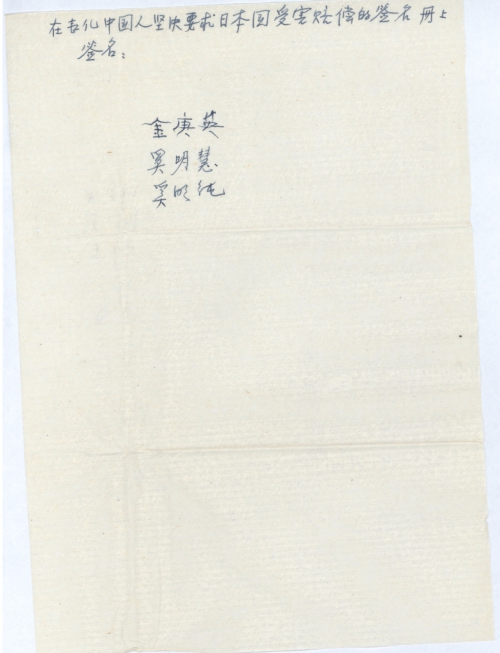 在表化中国人坚决要求日本国受害赔偿的签名册上
签名：
金庚英
吴明慧
吴明纯